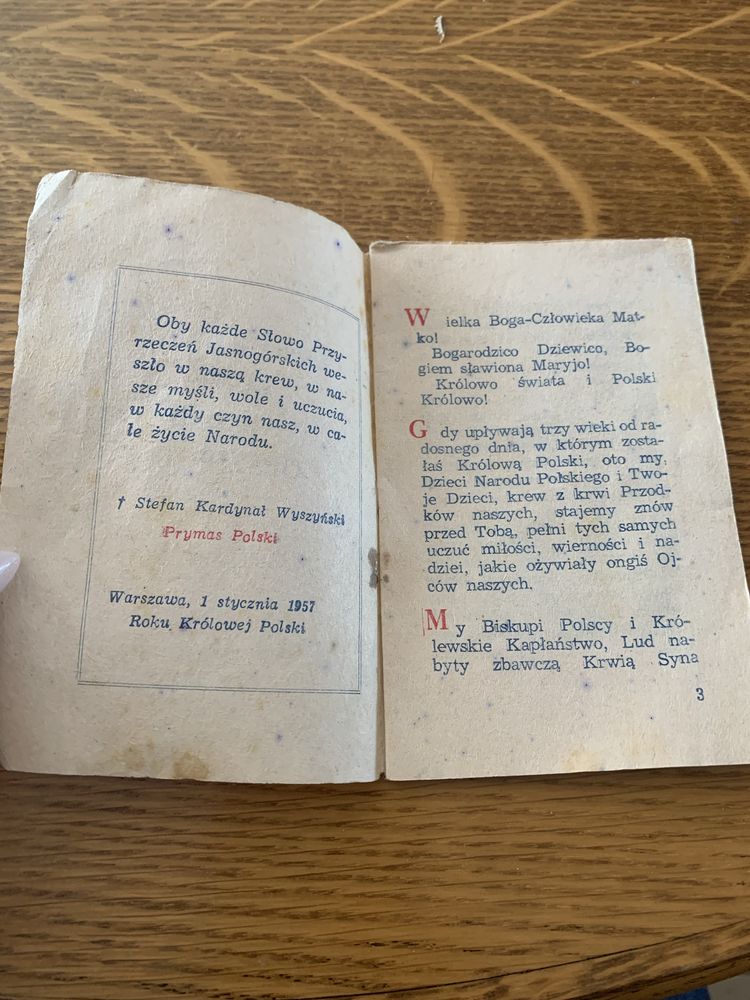 Oby każde Słowo Przy-
rzeczeń Jasnogórskich we-
szło w naszą krew, w na-
sze myśli, wole i uczucia,
w każdy czyn nasz, w ca-
łe życie Narodu.
† Stefan Kardynał Wyszyński
Prymas Polski
Warszawa, 1 stycznia 1957
Roku Królowej Polski
Wielka Boga-Człowieka Mat-
ko!
Bogarodzico Dziewico, Bo-
giem sławiona Maryjo!
Królowo świata i Polski
Królowo!
Gdy upływają trzy wieki od ra-
dosnego dnia, w którym zosta-
łaś Królową Polski, oto my,
Dzieci Narodu Polskiego i Two-
je Dzieci, krew z krwi Przod-
ków naszych, stajemy znów
przed Tobą, pełni tych samych
uczuć miłości, wierności i na-
dziei, jakie ożywiały ongiś Oj-
ców naszych.
My Biskupi Polscy i Kró-
lewskie Kapłaństwo, Lud na-
byty zbawczą Krwią Syna
3